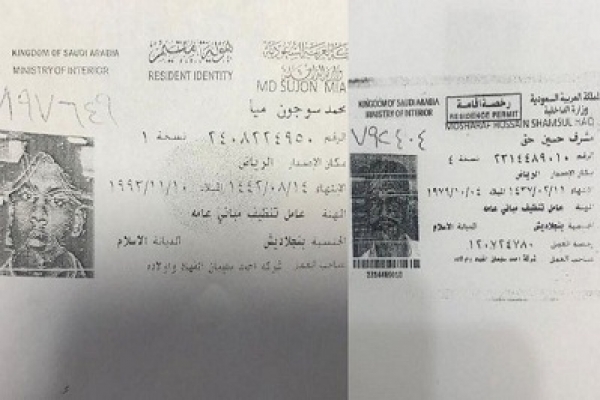 KINGDOM OF SAUDI ARABIA
MINISTRY OF INTERIOR
هوية مقيم
RESIDENT IDENTITY
العربية السعودية
وزارة الداخلية
MD SUJON MIA
محمد سوجون ميا
الرقم ٢٤٠٨٢٢٤٩٥٠ نسخة ١
مكان الإصدار الرياض
الانتهاء ١٤٤٢/٠٨/١٤ الميلاد ١٩٩٢/١١/١٠
المهنة عامل تنظيف مباني عامه
الجنسية بنجلاديش الديانة الاسلام
صاحب العمل شركة احمد سليمان الفهاد واولاده
KINGDOM OF SAUDI ARABIA
MINISTRY OF INTERIOR
رخصة إقامة
RESIDENCE PERMIT
المملكة العربية السعودية
وزارة الداخلية
MOSHARAF HOSSAIN SHAMSUL HAQ
مشرف حسين حق
٧٩٢٤٠٤
الرقم ٢٢١٤٤٨٩٠١٠ نسخة ٤
مكان الإصدار الرياض
الانتهاء ١٤٣٧/٠٢/١١ الميلاد ١٩٧٩/١٠/٠٤
المهنة عامل تنظيف مباني عامه
الجنسية بنجلاديش الديانة الاسلام
رخصة العمل ١٢٠٧٢٤٧٨٠
صاحب العمل شركة احمد سليمان الفهيد واولاده